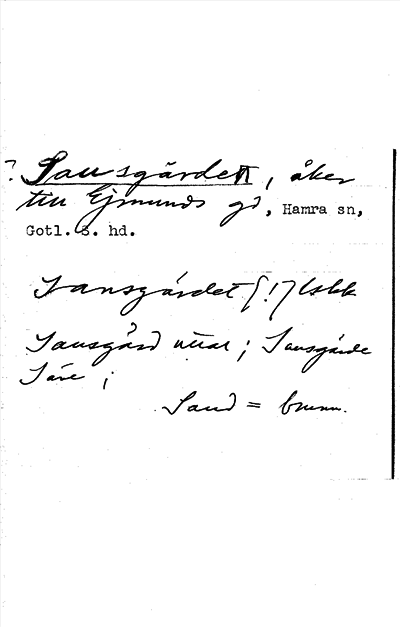 ? Sausgärdet, åker
till Ejmunds gd, Hamra sn,
Gotl. S. hd.
Sausgärdet [!] lskk
Sausgård uttal; Sausgärde
Säre;
Saud = brunn.